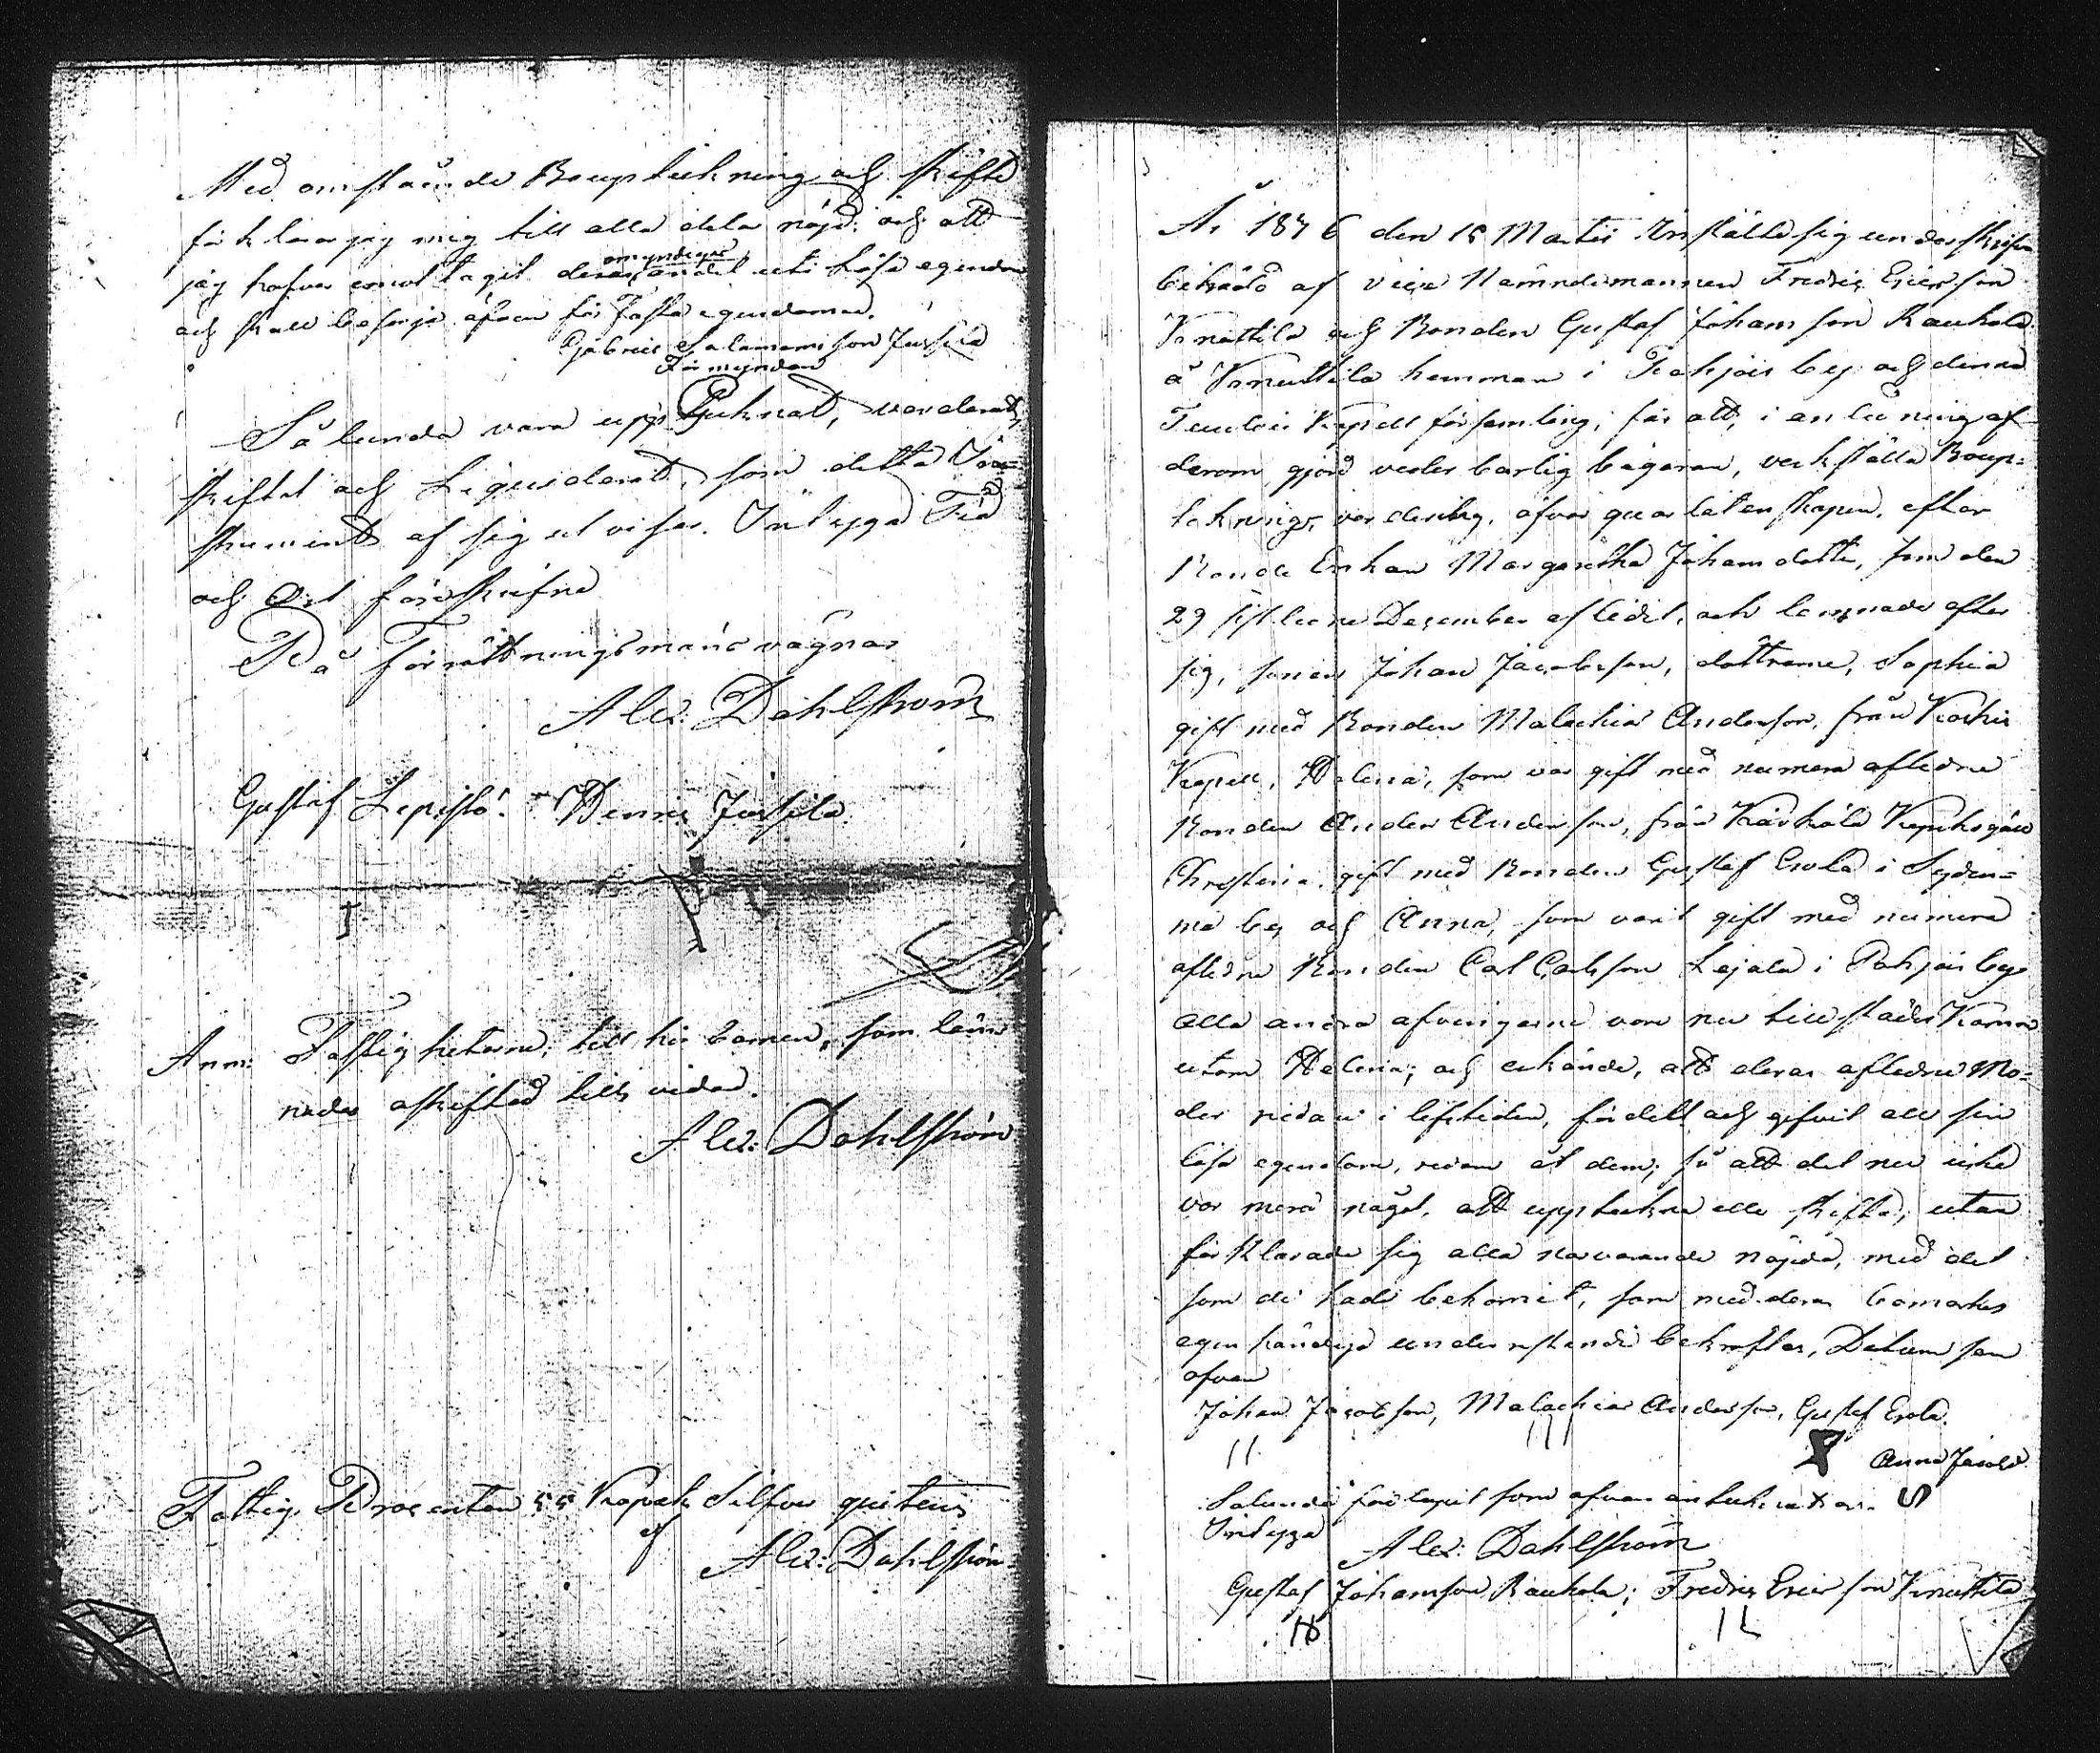 Med omstående Bouptekning och skifte
förklarar jag mig till alla delar nöjd, och att
jag hafver emottagit deras omyndigas andel uti lösa egendom
och skall besörja äfven för Fasta egendomen.
Gabriel Salamonisson Jussila
Förmyndare
Sålunda vara upptecknat, värderat,
skiftat och Liqviderat, som detta Jn=
strument af sig utvisar. Intygga Tid
och Ort föreskrifne
På Förrättningsmäns vägnar
Alex: Dahlström
Gustaf Lepistö. Henric Jussila
Anm: Fastigheterne, till hör barnen, som läm
nades oskiftad tills vidare.
Alex: Dahlström
Fattig Procenten 55 Kopek Silfver quiteras
af
Alex: Dahlström
År 1846 den 18 Martii Instälte sig underskrifven
biträdd af vice Nämndemannen Fredric Ericsson
Knuttila och Bonden Gustaf Johansson Rauhala
å Knuttila hemman i Pohjois by och denna
Kapell församling, för att, i anledning af
derom gjord vederbörlig begäran, verkställa Boup=
tekning, värdering, öfver qvarlåtenskapen, efter
Bonde Enkan Margaretha Johansdotter, som den
29 sistledne December aflidit, och lemnade efter
sig, sonen Johan Jacobsson, döttrarne, Sophia
gift med Bonden Malachias Andersson, från
Kapell, Helena, som var gift med numera aflidne
Bonden Anders Andersson, från
Christina, gift med Bonden Gustaf Erola i Syden=
ma by och Anna, som varit gift med numera
aflidne Bonden Carl Carlsson Lajala i Pohjois by
Alla andra arfvingarne voro nu tillstädes komne
utom Helena; och erkände, att deras aflidne Mo=
der redan i lifstiden, fördelt och gifvit all sin
lösa egendom, redan åt dem; så att det nu icke
var mera något, att uppteckna eller skifta, utan
förklarade sig alla närvarande nöjda, med det
som de hade bekommit, som med deras bomärkes
egenhändiga underritande bekräftas, Datum som
ofvan
Johan Jacobsson, Malachias Andersson, Gustaf Erola.
Anna
Sålunda förelupit som ofvan antecknat är.
Intygga
Alex: Dahlström
Gustaf Johansson Rauhala; Fredric Ericsson Knuttila